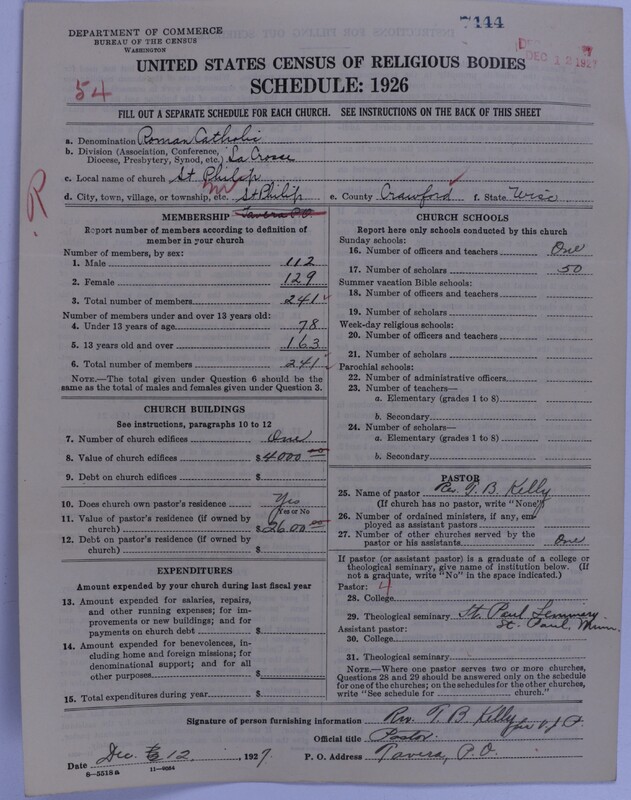 7444
DEPARTMENT OF COMMERCE
BUREAU OF THE CENSUS
WASHINGTON
DEC 12 192
UNITED STATES CENSUS OF RELIGIOUS BODIES
SCHEDULE: 1926
54
FILL OUT A SEPARATE SCHEDULE FOR EACH CHURCH. SEE INSTRUCTIONS ON THE BACK OF THIS SHEET
a. Denomination Roman Catholic
b. Division (Association, Conference,
Diocese, Presbytery, Synod, etc.) La Crosse
c. Local name of church St Philip
R
d. City, town, village, or township, etc. St Philip e. County Crawford f. State Wisc
Tavera P.O.
MEMBERSHIP
Report number of members according to definition of
member in your church
Number of members, by sex:
1. Male 112
2. Female 129
3. Total number of members 241
Number of members under and over 13 years old:
4. Under 13 years of age 78
5. 13 years old and over 163
6. Total number of members 241
NOTE.—The total given under Question 6 should be the
same as the total of males and females given under Question 3.
CHURCH BUILDINGS
See instructions, paragraphs 10 to 12
7. Number of church edifices One
8. Value of church edifices $4000 00
9. Debt on church edifices $
10. Does church own pastor's residence Yes
Yes or No
11. Value of pastor's residence (if owned by
church) $2600 00
12. Debt on pastor's residence (if owned by
church) $
EXPENDITURES
Amount expended by your church during last fiscal year
13. Amount expended for salaries, repairs,
and other running expenses; for im-
provements or new buildings; and for
payments on church debt $
14. Amount expended for benevolences, in-
cluding home and foreign missions; for
denominational support; and for all
other purposes $
15. Total expenditures during year $
CHURCH SCHOOLS
Report here only schools conducted by this church
Sunday schools:
16. Number of officers and teachers One
17. Number of scholars 50
Summer vacation Bible schools:
18. Number of officers and teachers
19. Number of scholars
Week-day religious schools:
20. Number of officers and teachers
21. Number of scholars
Parochial schools:
22. Number of administrative officers
23. Number of teachers—
a. Elementary (grades 1 to 8)
b. Secondary
24. Number of scholars—
a. Elementary (grades 1 to 8)
b. Secondary
PASTOR
25. Name of pastor Rev. T. B. Kelly
(If church has no pastor, write "None")
26. Number of ordained ministers, if any, em-
ployed as assistant pastors
27. Number of other churches served by the
pastor or his assistants One
If pastor (or assistant pastor) is a graduate of a college or
theological seminary, give name of institution below. (If
not a graduate, write "No" in the space indicated.)
Pastor: 4
28. College
29. Theological seminary St. Paul Seminary
St. Paul, Minn.
Assistant pastor:
30. College
31. Theological seminary
NOTE.—Where one pastor serves two or more churches,
Questions 28 and 29 should be answered only on the schedule
for one of the churches; on the schedules for the other churches,
write "See schedule for church."
Signature of person furnishing information Rev. T. B. Kelly
Official title Pastor
Date Dec. 12, 1927. P. O. Address Tavera, P.O.
8-5518a 11-8064